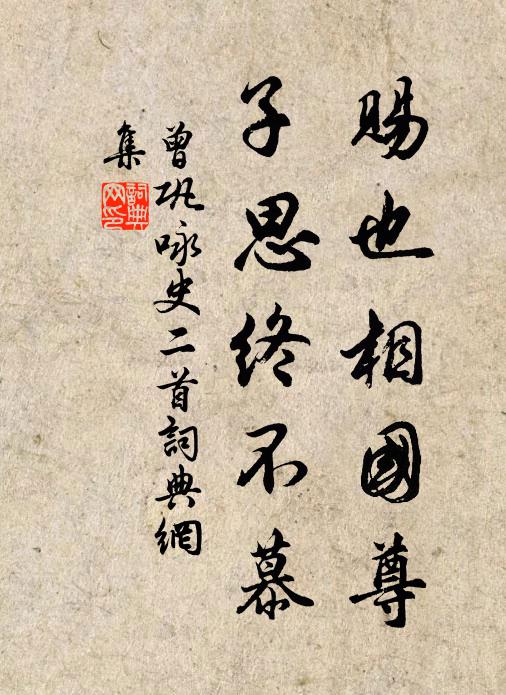 賜也相國尊
子思終不慕
曾巩咏史二首詞典網
集
詞典
网印